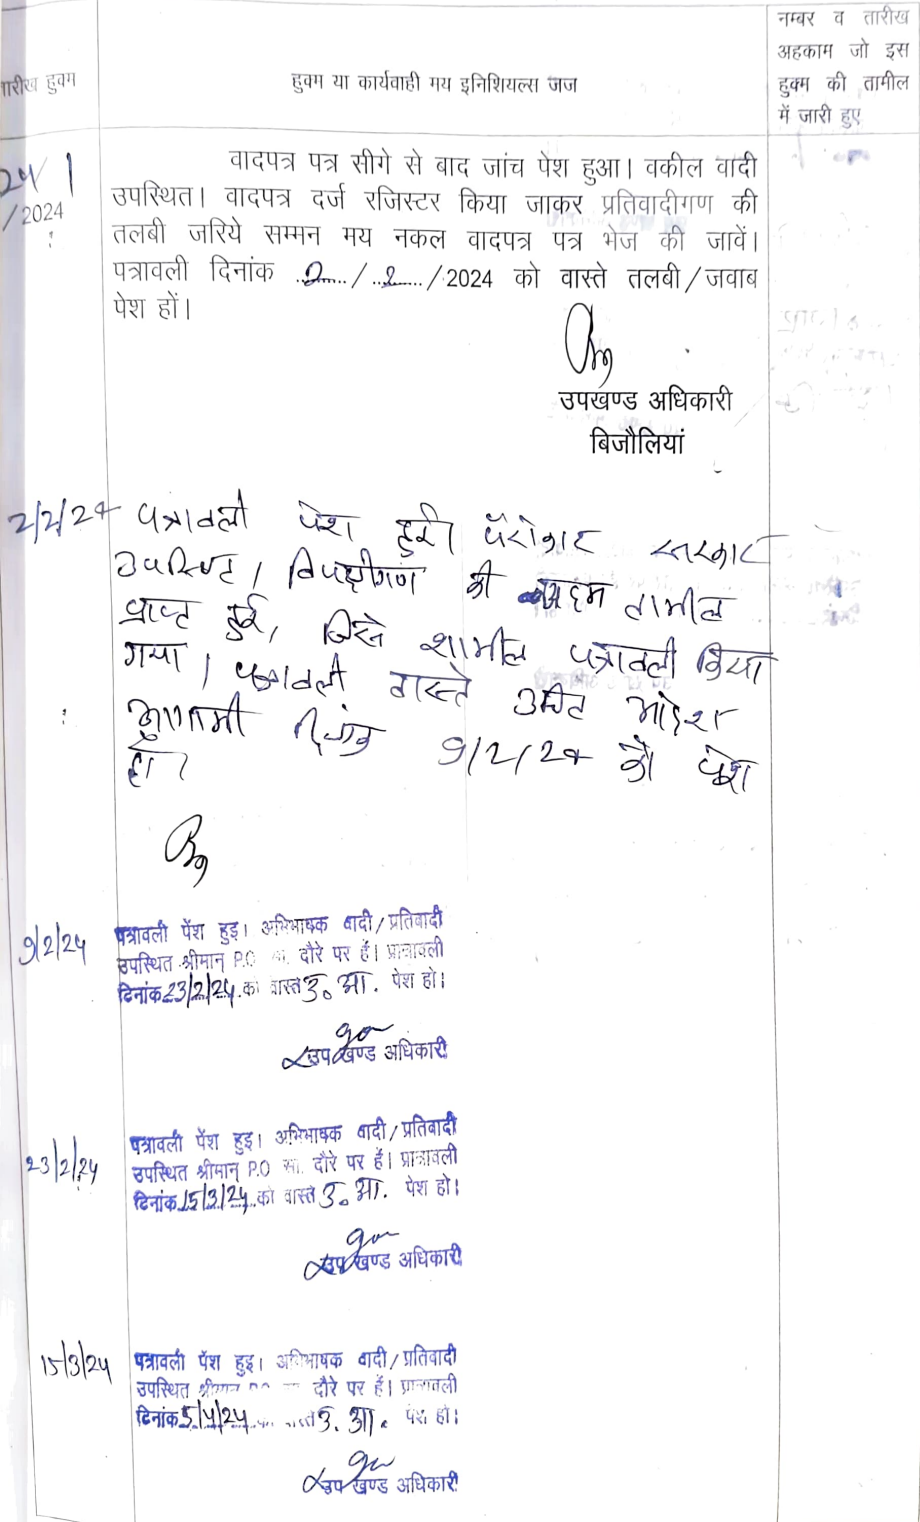 नम्बर व तारीख
अहकाम जो इस
हुक्म की तामील
में जारी हुए
तारीख हुक्म
हुक्म या कार्यवाही मय इनिशियल्स जज
24/1
/2024
वादपत्र पत्र सीगे से बाद जांच पेश हुआ। वकील वादी
उपस्थित। वादपत्र दर्ज रजिस्टर किया जाकर प्रतिवादीगण की
तलबी जरिये सम्मन मय नकल वादपत्र पत्र भेज की जावें।
पत्रावली दिनांक 2/2/2024 को वास्ते तलबी/जवाब
पेश हों।
उपखण्ड अधिकारी
बिजौलियां
2/2/24 पत्रावली पेश हुई। पैरोकार सरकार
उपस्थित। विपक्षीगण की तामील
प्राप्त हुई, जिसे शामील पत्रावली किया
गया। पत्रावली वास्ते उचित आदेश
आगामी दिनांक 9/2/24 को पेश
हो।
9/2/24 पत्रावली पेंश हुइ। अभिभाषक वादी/प्रतिवादी
उपस्थित श्रीमान् P.O सा. दौरे पर हैं। पत्रावली
दिनांक 23/2/24 को वास्ते उ. आ. पेश हो।
उपखण्ड अधिकारी
23/2/24 पत्रावली पेंश हुइ। अभिभाषक वादी/प्रतिवादी
उपस्थित श्रीमान् P.O सा. दौरे पर हैं। पत्रावली
दिनांक 15/3/24 को वास्ते उ. आ. पेश हो।
उपखण्ड अधिकारी
15/3/24 पत्रावली पेंश हुइ। अभिभाषक वादी/प्रतिवादी
उपस्थित श्रीमान P.O सा. दौरे पर हैं। पत्रावली
दिनांक 5/4/24 को वास्ते उ. आ. पेश हो।
उपखण्ड अधिकारी